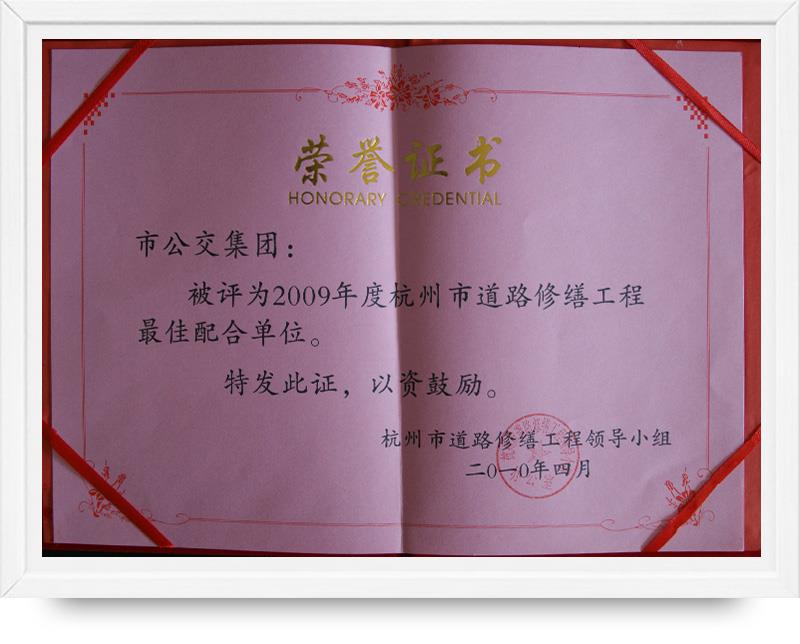 荣誉证书
HONORARY CREDENTIAL
市公交集团：
被评为2009年度杭州市道路修缮工程
最佳配合单位。
特发此证，以资鼓励。
杭州市道路修缮工程领导小组
二〇一〇年四月
办公室